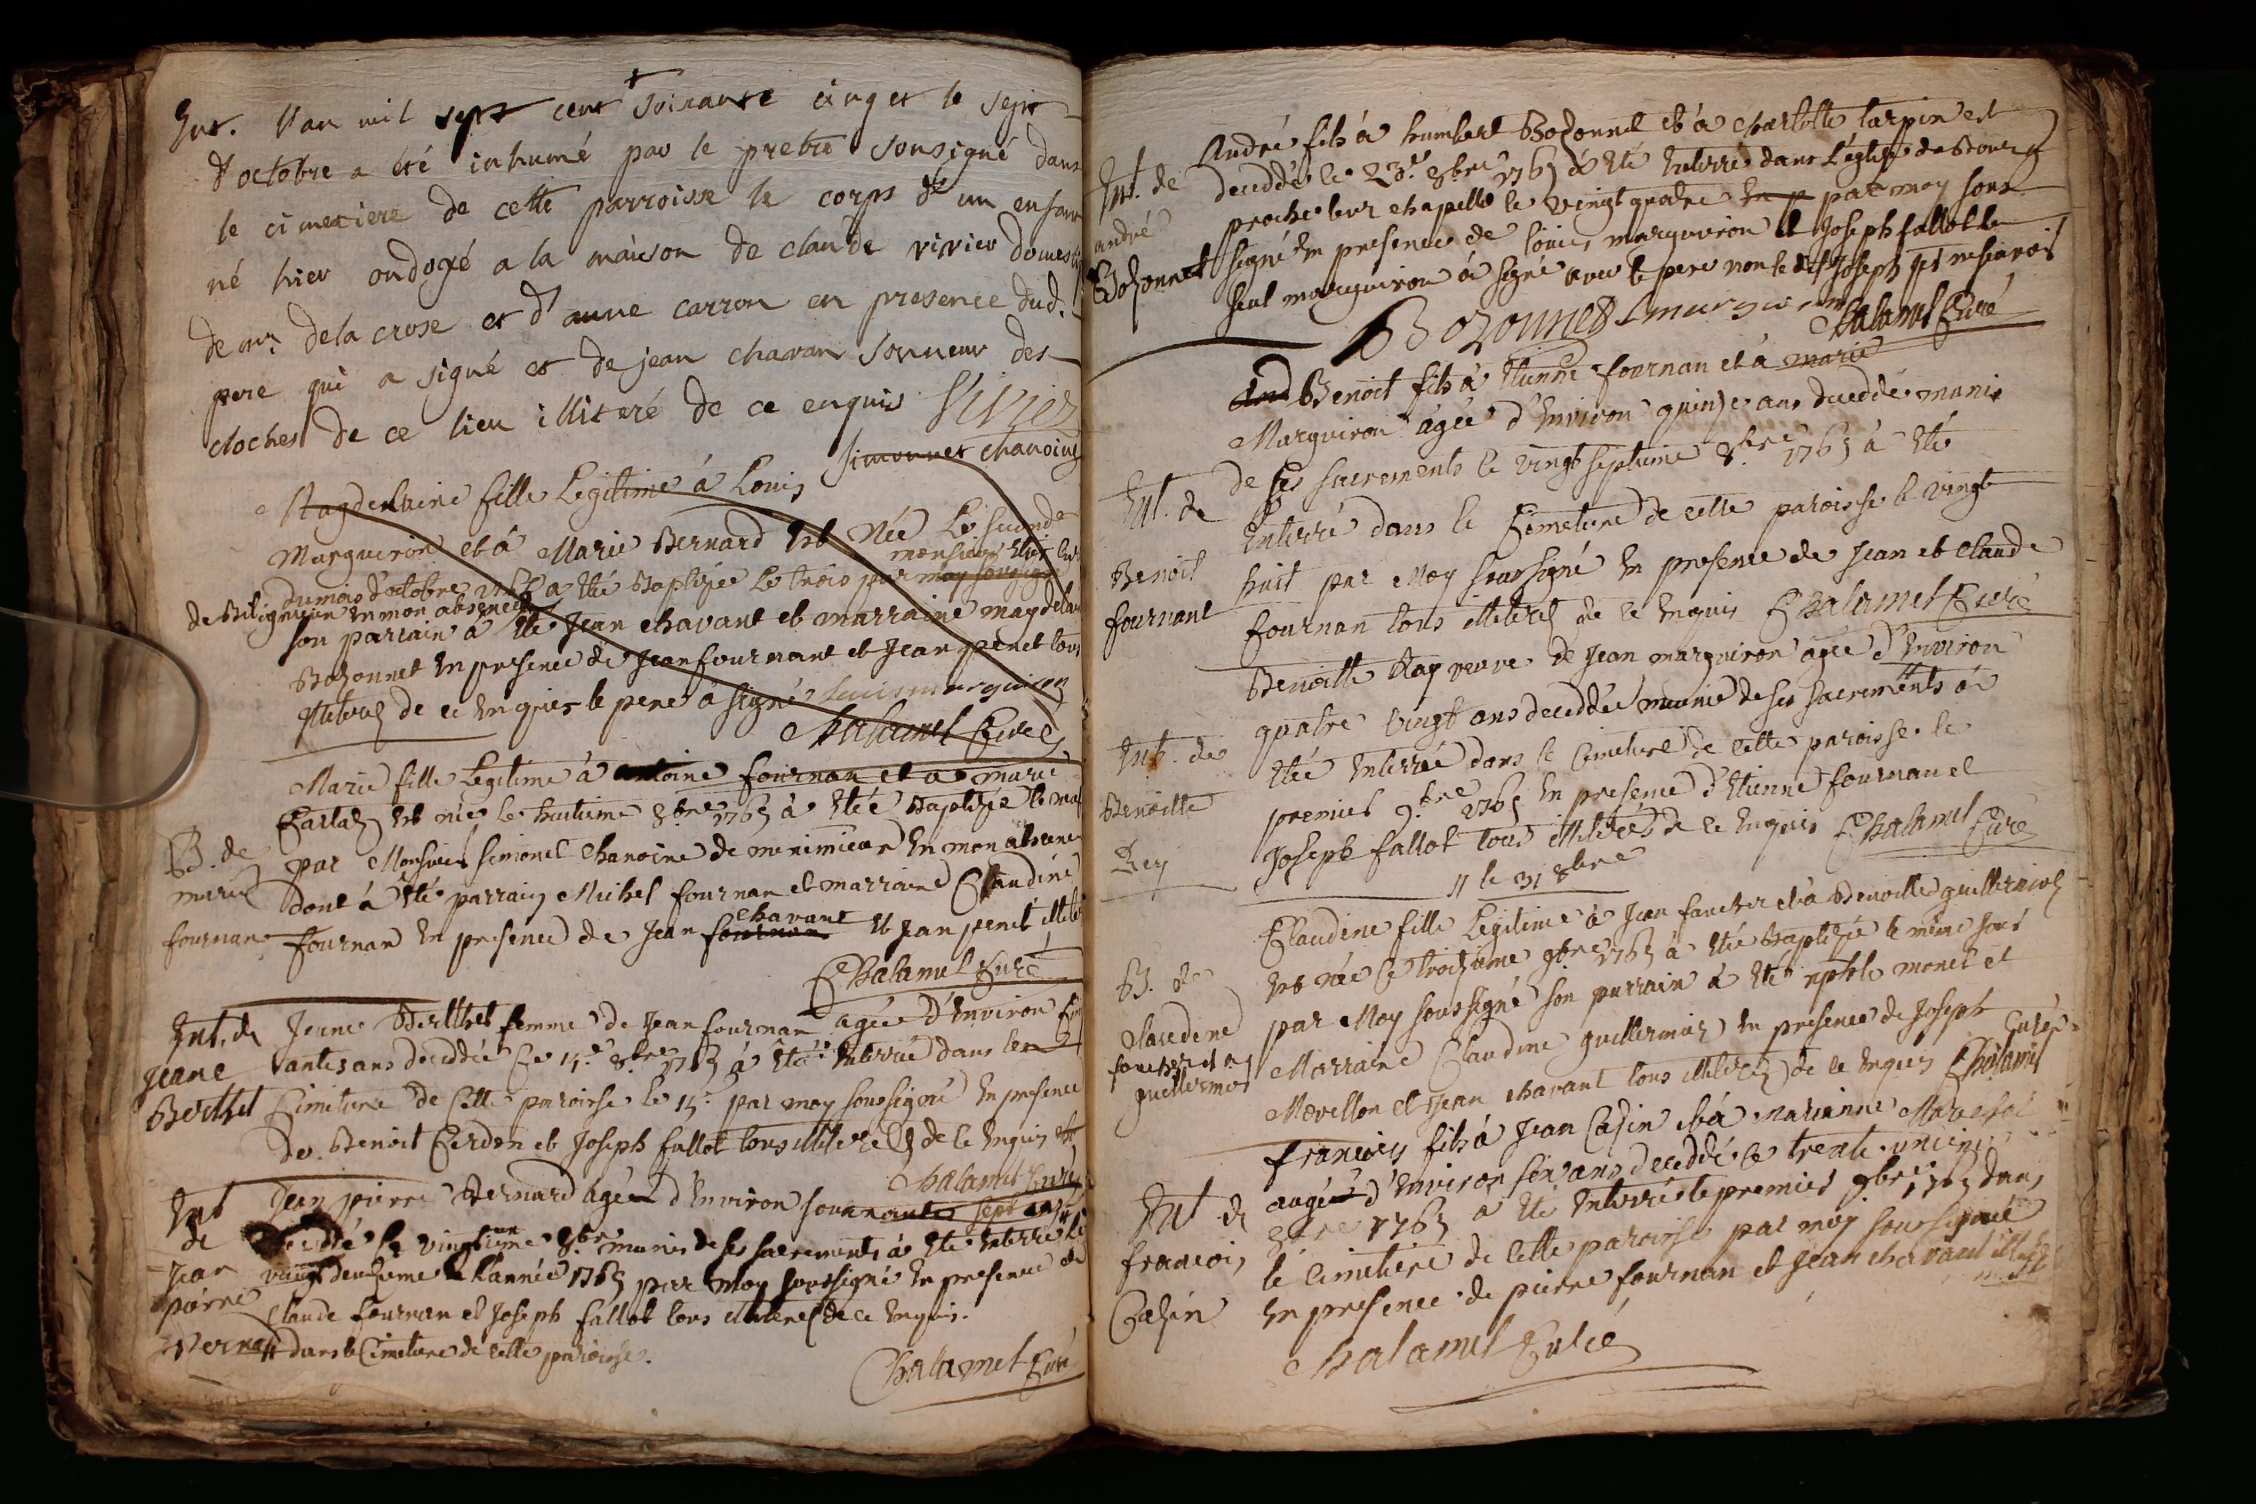 Ent. L'an mil sept cent soixante cinq et le sept
d'octobre a été inhumé par le pretre sousigné dans
le cimetiere de cette parroisse le corps d'un enfant
né hier ondoyé a la maison de claude vivier domesti
de mr. delacrose et d'anne carron en presence dud.
pere qui a signé et de jean chavan sonneur des
cloches de ce lieu illiteré de ce enquis Vivier
Simonnet chanoine
Magdelaine fille Legitime á Louis
Marguiron et á Marie Bernard Est Née Le second
du mois d'octobre a Eté Baptizée Le trois par moy soussigné
monsieur
de Beligneux En mon absence
son parrain á Eté Jean chavant et marraine magdelai
Bozonnet En presence de Jean fournant et Jean penet tous
illiterez de ce Enquis le pere á signé Louis marguiron
Chalamel Curé
Marie fille Legitime á antoine fournan et a marie
Est née le huitieme 8bre 1765 á Etée Baptizée le
B. de
marie
fournan
par Monsieur simonet chanoine de En mon absence
dont á Eté parrain Michel fournan et marraine Claudine
chavant
fournan En presence de Jean fournan Et Jean penet
Chalamel Curé
Ent. de
Jeane
Berthet
Jeane Berthet femme de Jean fournan agée d'Environ
ans deceddée Le 14e 8bre 1765 á Etée Enterrée dans le
Cimetiere de Cette paroisse le 15e par moy soussigné En presence
de Benoit Cerdon et Joseph fallot tous illiterez de ce Enquis
Chalamel Curé
Ent
de
Jean
pierre
Bernard
Jean pierre Bernard agée d'Environ sept ans
8bre munis de ses sacrements á Eté Enterré le
vingt deuzieme L'année 1765 par Moy soussigné En presence de
Claude fournan et Joseph fallot tous illiterez de ce Enquis.
dans le Cimetiere de cette paroisse.
Chalamel Curé
Ent. de
andré
Bozonnet
André fils á humbert Bozonnet et á charlotte tarpin est
deceddé le 23e 8bre 1765 á Eté Enterré dans L'eglise de Bourg
proche leur chapelle le vingt quatre En p par moy sous
signé En presence de Louis marguiron et Joseph fallot le
seul marguiron á signé avec le pere non le dit Joseph
Bozonnet L marguiron
Chalamel Curé
And Benoit fils á Etienne fournan et á marie
Marguiron âgée d'Environ quinze ans deceddé munis
de ses sacrements le vingt septieme 8bre 1765 á Eté
Ent. de
Benoit
fournant
Enterré dans le Cimetiere de cette paroisse le vingt
huit par Moy soussigné En presence de Jean et Claude
fournan tous illiterez de ce Enquis Chalamel Curé
Ent. de
Benoitte
Rey
Benoitte Ray veuve de Jean marguiron agée d'Environ
quatre vingt ans deceddée munie de ses sacrements á
Etée Enterrée dans le Cimetiere de cette paroisse le
premier 9bre 1765 En presence d'Etienne fournan et
Joseph fallot tous illiterés de ce Enquis Chalamel Curé
11 le 31 8bre
B. de
Claudine
guillermoz
Claudine fille Legitime á Jean et á Benoitte guillermoz
Est née Le troizieme 9bre 1765 á Etée Baptizée le même jour
par Moy soussigné son parrain á Eté monet et
Marraine Claudine guillermoz En presence de Joseph
Mevellon et Jean chavant tous illiterez de ce Enquis Chalamel
Curé
Ent de
francois
Cazin
francois fils á Jean Cazin et á Marianne
augée d'Environ six ans deceddé le trente unieme
8bre 1765 a Eté Enterré le premier 9bre 1765 dans
le Cimetiere de cette paroisse par moy soussigné
En presence de pierre fournan et Jean chavant
Chalamel Curé